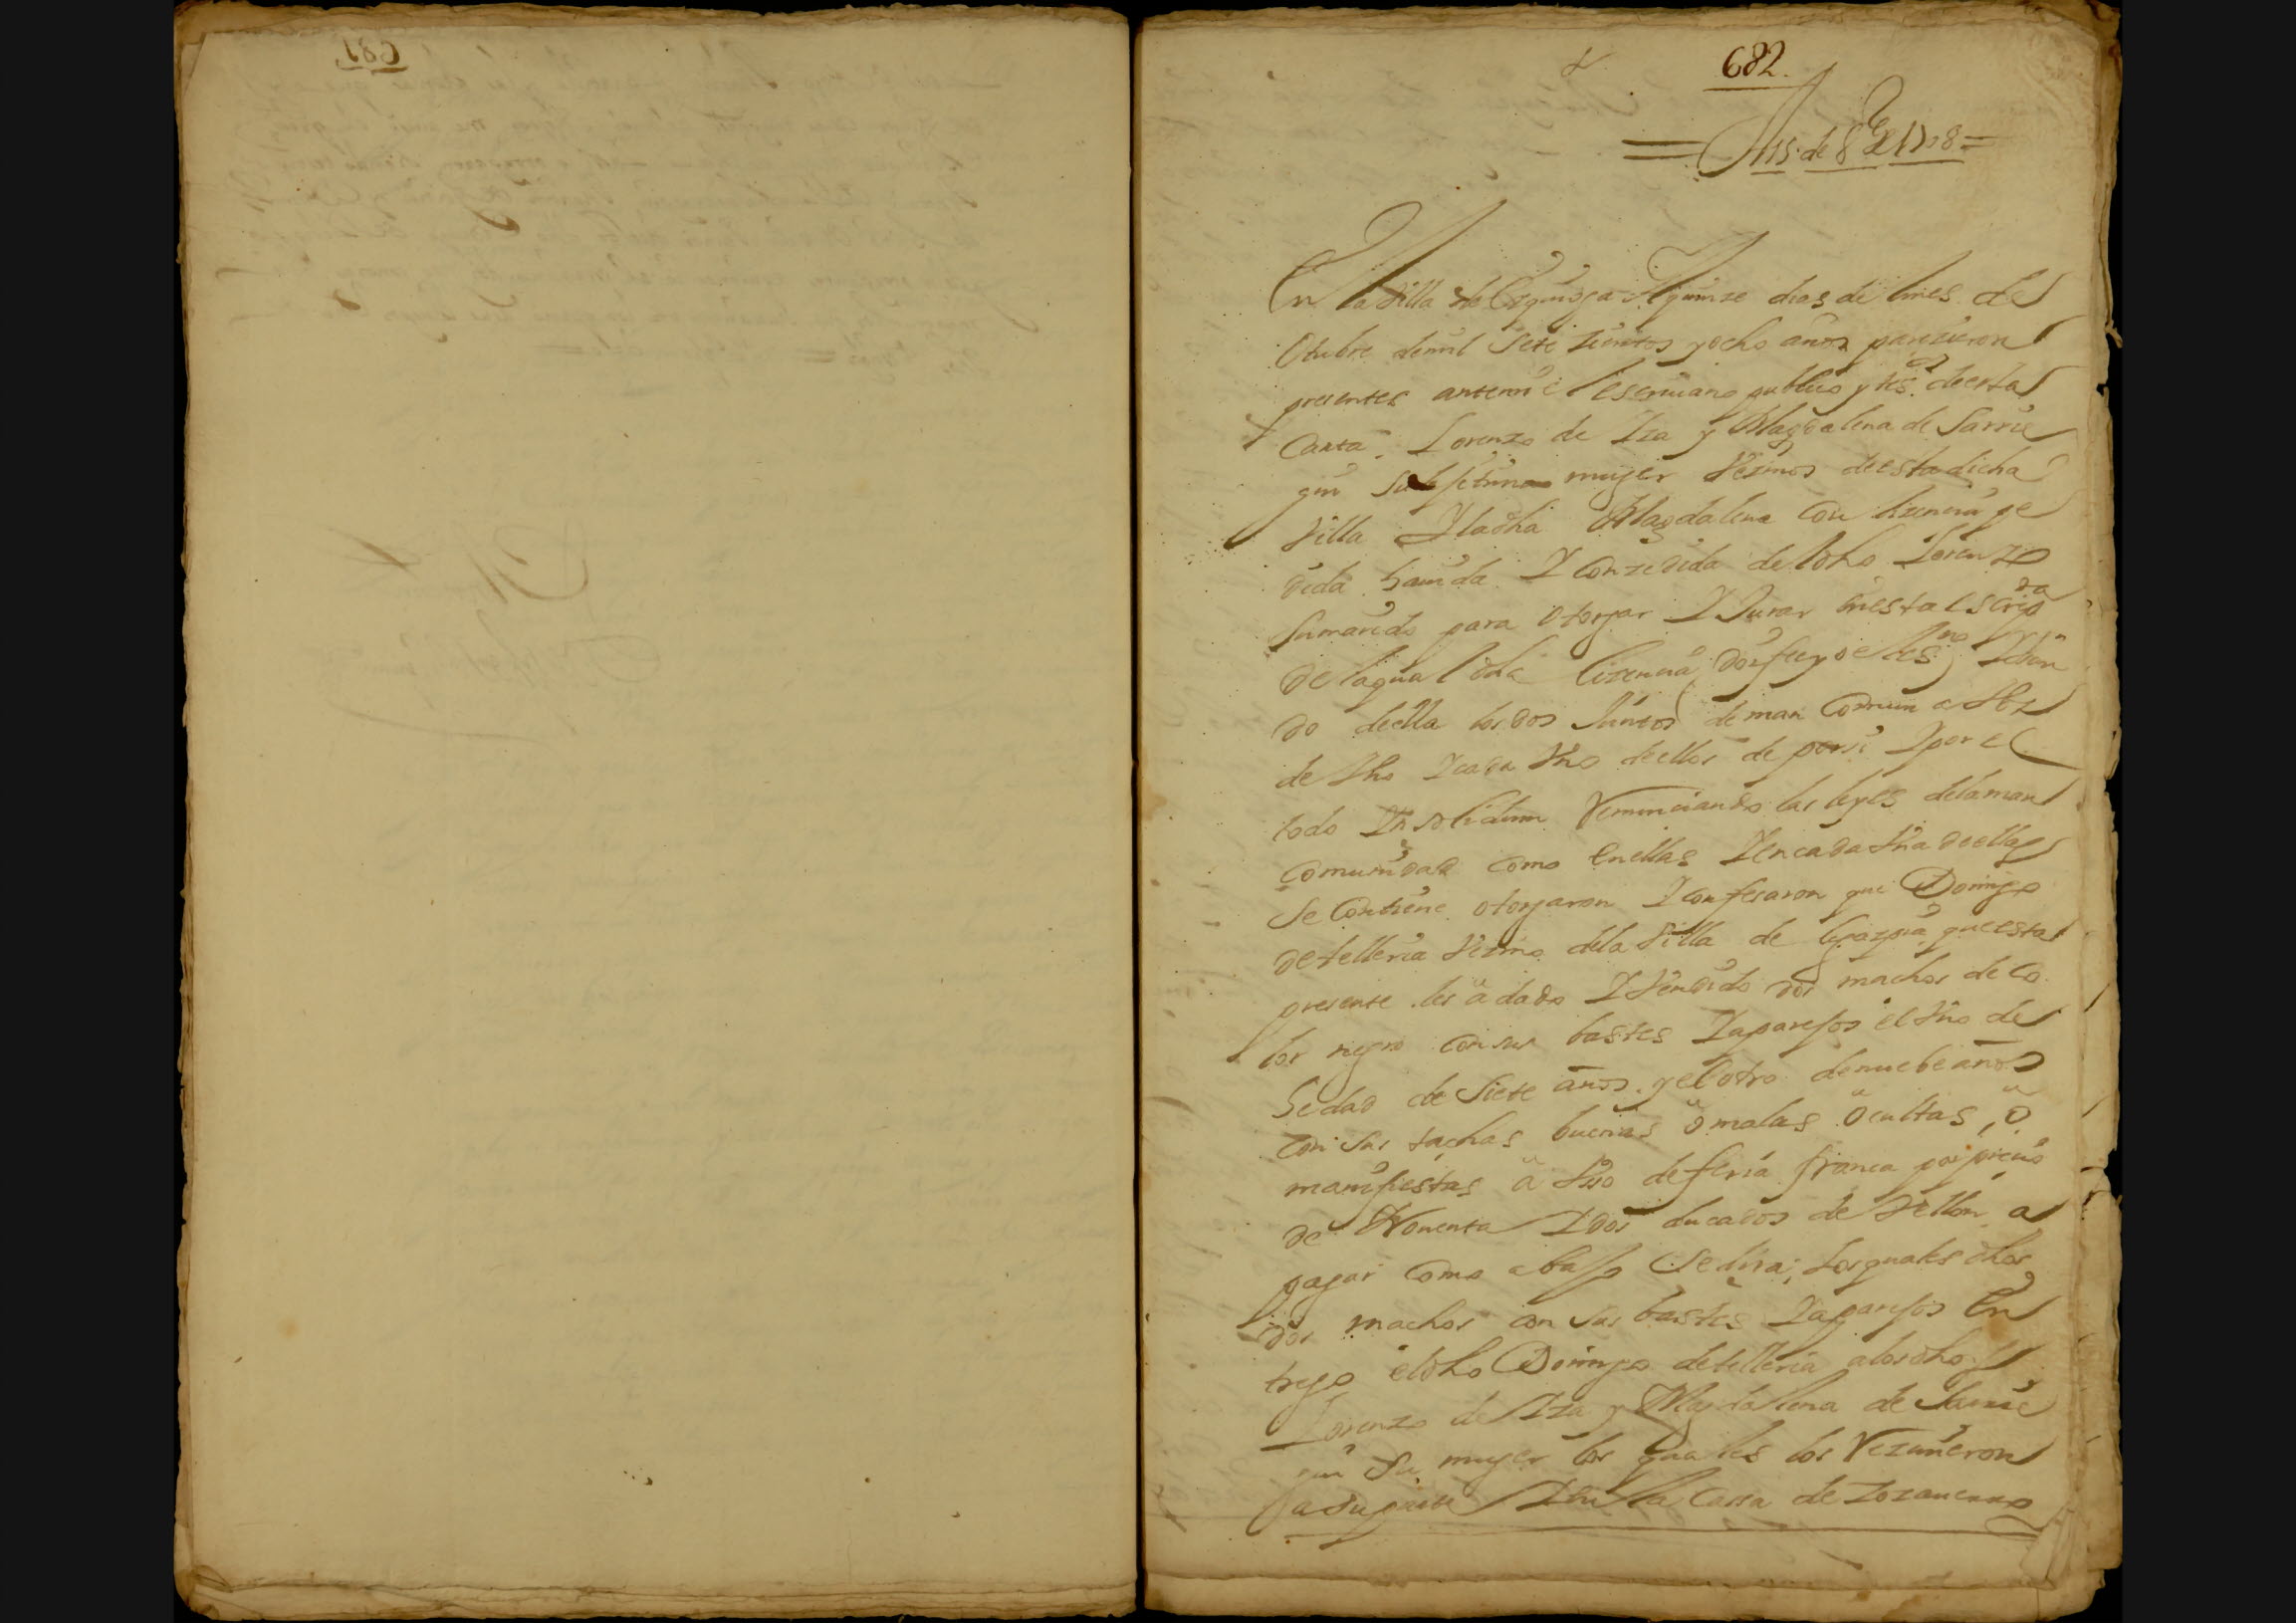 682.
= A 15. de 8re de 1708 =
En la Villa de Ezquioga A quinze dias del mes de
Otubre de mil sete zientos y ocho años parezieron
presentes antemi el escrivano publico y tsos de esta
Carta Lorenzo de Iza y Magdalena de Sarrie
gui su lejitima mujer Vezinos de esta dicha
Villa Y la dha Magdalena con lizenzia pe
dida havida Y conzedida del dho Lorenzo
su marido para otorgar Y Jurar en esta escripra
de la qual dha lizenzia doy fee yo el esno Y usan
do de ella los dos Juntos de man comun a Voz
de Vno Y cada Vno de ellos de por si Y por el
todo Yn solidum Renunciando las leyes de la man
comunidad como en ellas Y en cada Vna de ellas
se contiene otorgaron Y confesaron que Domingo
de telleria Vezino de la Villa de legazpia que esta
presente les a dado Y Vendido dos machos de co
lor negro con sus bastes Y aparejos el Vno de
hedad de siete años y el otro de nuebe años
con sus tachas buenas o malas ocultas, o
manifiestas a Vso de feria franca por precio
de Nobenta Y dos ducados de Vellon a
pagar como abajo se dira; los quales dhos
dos machos con sus bastes Y aparejos en
trego el dho Domingo de telleria a los dhos
Lorenzo de Iza y Magdalena de Sarrie
gui su mujer los quales los Rezivieron
a su parte Y en la Cassa de